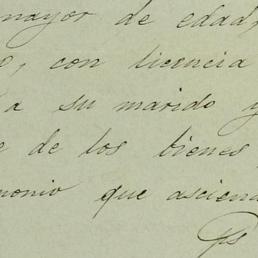 mayor de edad,
o, con licencia
a su marido y
e de los bienes
monio que ascien